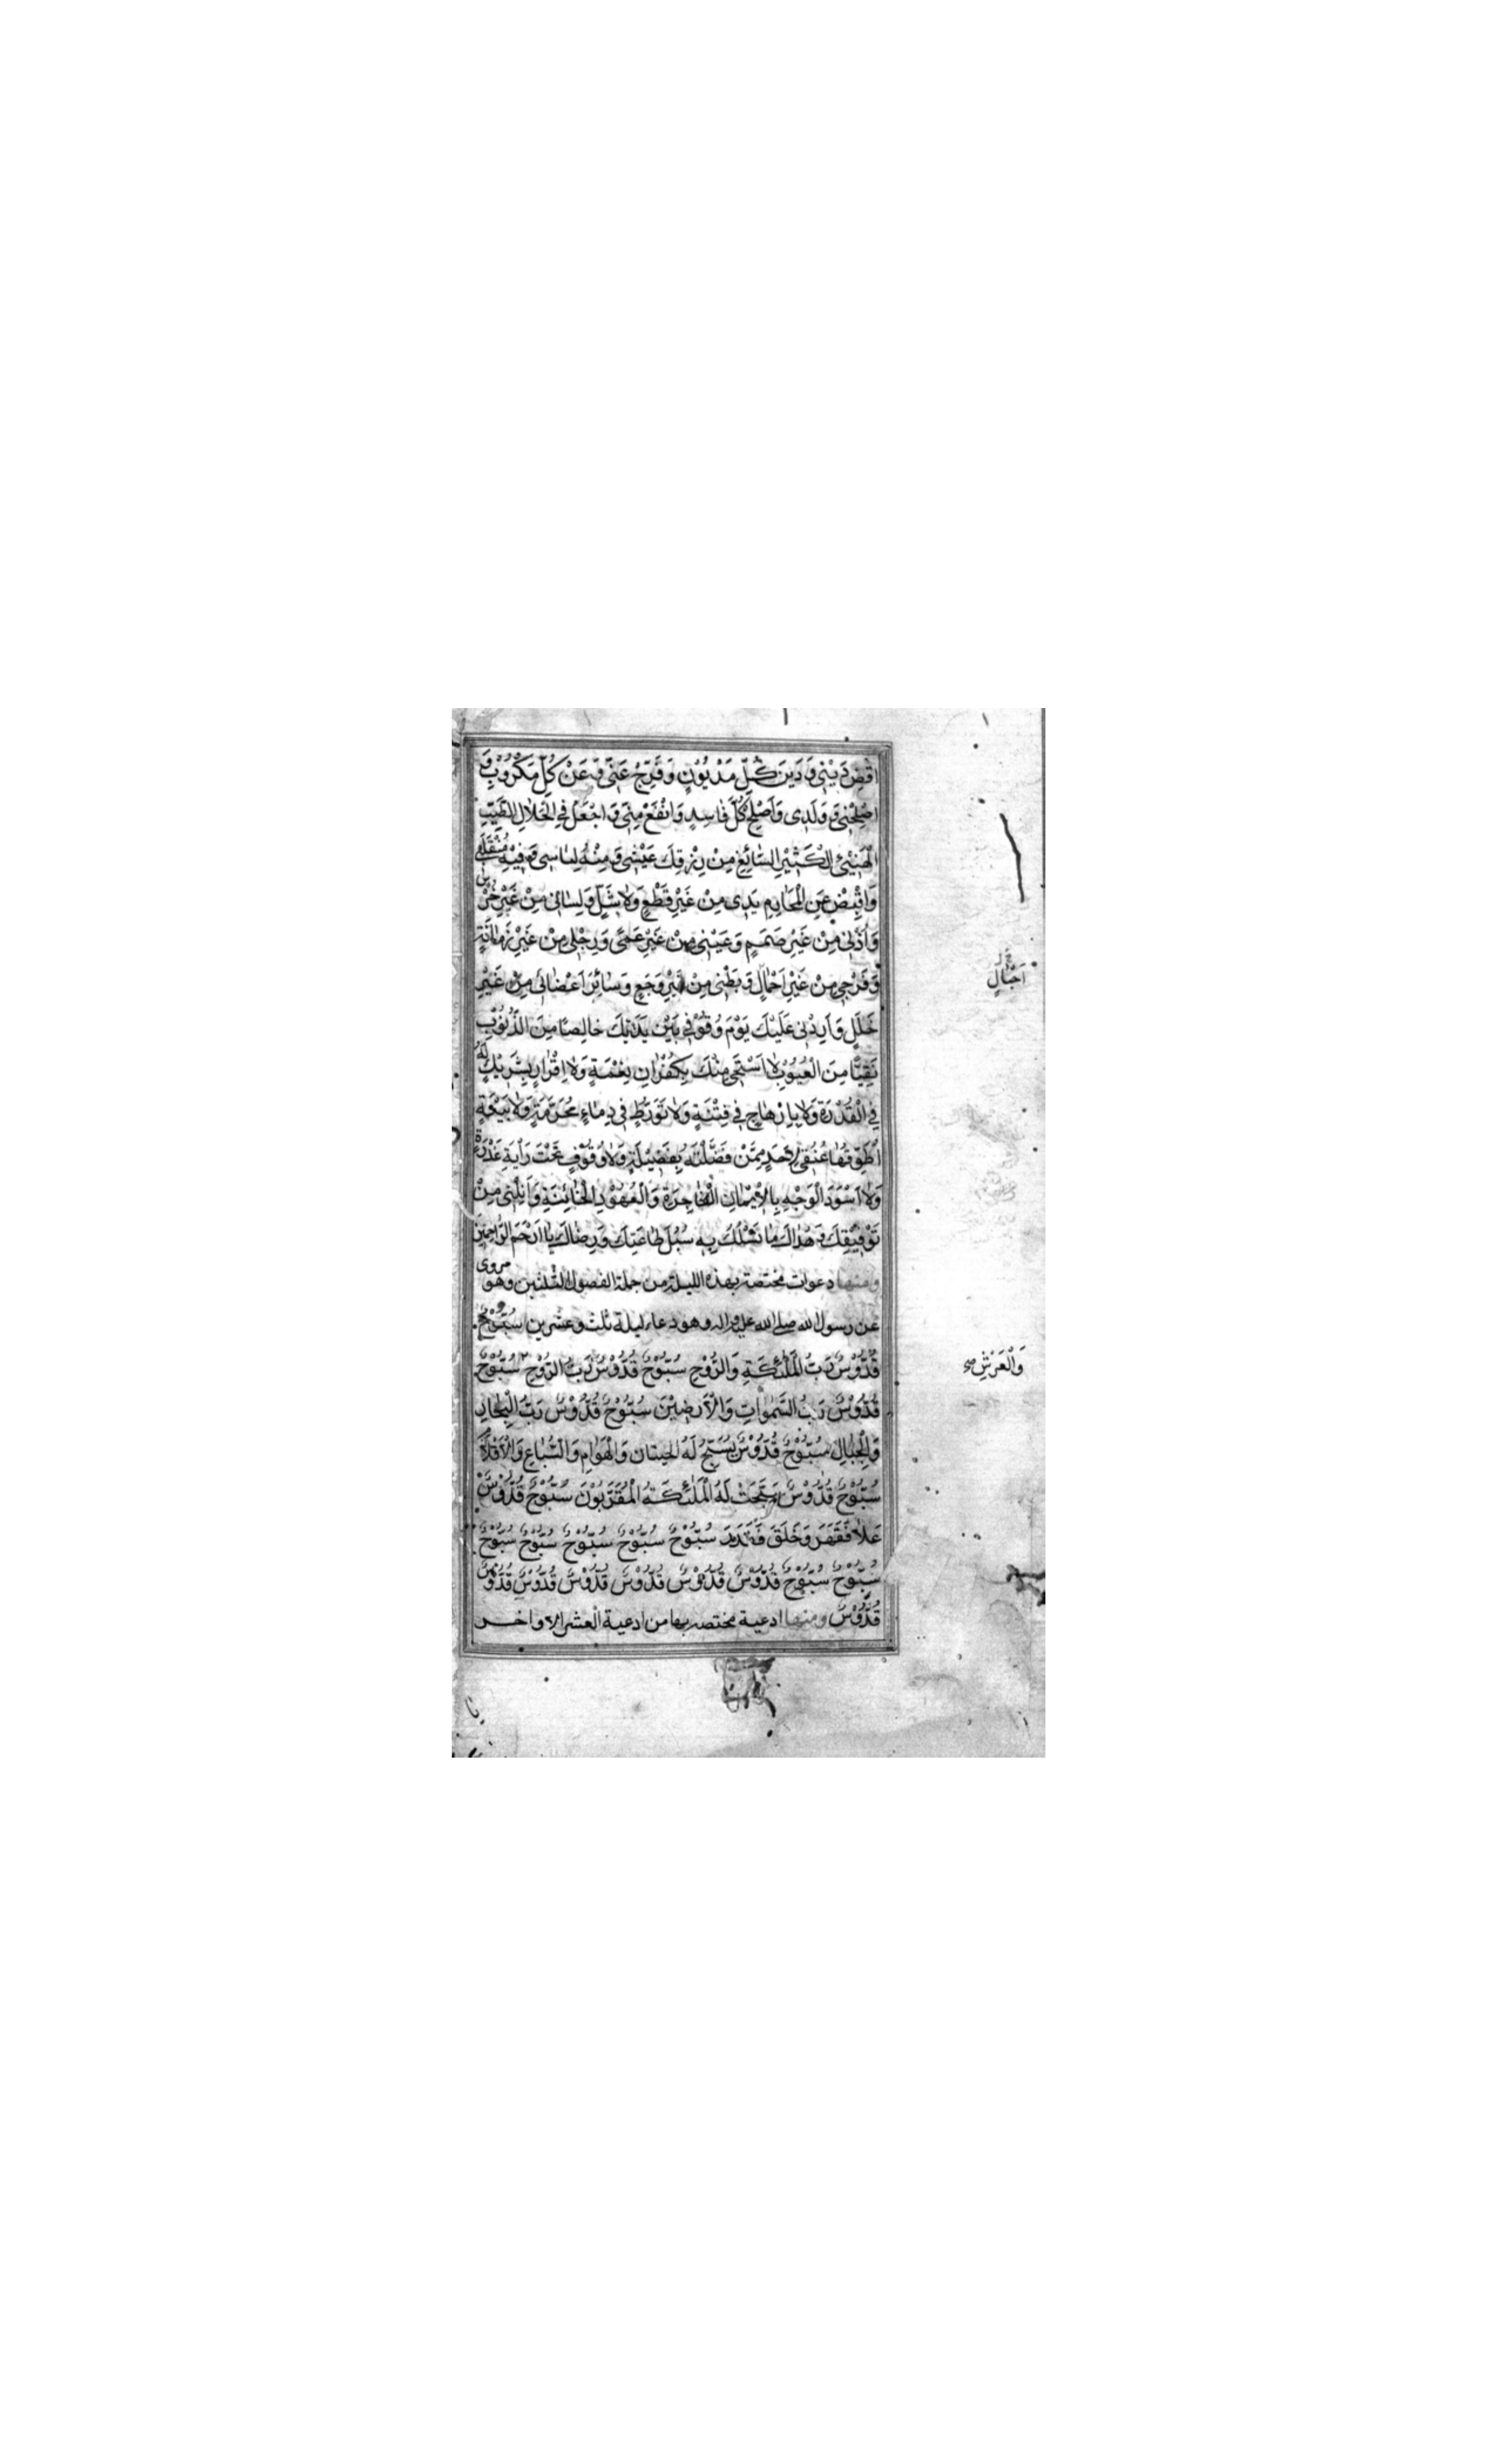 اقْضِ دَيْنِي وَدَيْنَ كُلِّ مَدْيُوْنٍ وَفَرِّجْ عَنِّي وَعَنْ كُلِّ مَكْرُوْبٍ وَ
اَصْلِحْنِي وَوَلَدِى وَاَصْلِحْ كُلَّ فَاسِدٍ وَانْفَعْ مِنِّي وَاجْعَلْ فِي الْحَلَالِ الطَّيِّبِ
الْهَنِيْئِ الْكَثِيْرِ السَّائِغِ مِنْ رِزْقِكَ عَيْشِي وَمِنْهُ لِبَاسِي وَفِيْهِ مُنْقَلَبِي
وَاقْبِضْ عَنِ الْمَحَارِمِ يَدِى مِنْ غَيْرِ قَطْعٍ وَلَا شَلٍّ وَلِسَانِى مِنْ غَيْرِ خَرَسٍ
وَاُذُنِى مِنْ غَيْرِ صَمَمٍ وَعَيْنِى مِنْ غَيْرِ عَمًى وَرِجْلِى مِنْ غَيْرِ زَمَانَةٍ
وَفَرْجِى مِنْ غَيْرِ اَحْبَالٍ وَبَطْنِى مِنْ غَيْرِ وَجَعٍ وَسَائِرَ اَعْضَائِى مِنْ غَيْرِ
خَلَلٍ وَاَوْرِدْنِى عَلَيْكَ يَوْمَ وُقُوْفِي بَيْنَ يَدَيْكَ خَالِصًا مِنَ الذُّنُوْبِ
نَقِيًّا مِنَ الْعُيُوْبِ لَا اَسْتَحْيِى مِنْكَ بِكُفْرَانِ نِعْمَةٍ وَلَا اِقْرَارٍ بِشَرِيْكٍ لَهُ
فِي الْقُدْرَةِ وَلَا بِاِرْهَاجٍ فِي فِتْنَةٍ وَلَا تَوَرُّطٍ فِى دِمَاءٍ مُحَرَّمَةٍ وَلَا بَيْعَةٍ
اُطَوِّقُهَا عُنُقِى لِاَحَدٍ مِمَّنْ فَضَّلْتَهُ بِفَضِيْلَةٍ وَلَا وُقُوْفٍ تَحْتَ رَايَةِ غَدْرَةٍ
وَلَا اَسْوَدَ الْوَجْهِ بِالْاَيْمَانِ الْفَاجِرَةِ وَالْعُهُوْدِ الْخَائِنَةِ وَاَنِلْنِى مِنْ
تَوْفِيْقِكَ وَهُدَاكَ مَا نَسْلُكُ بِهِ سُبُلَ طَاعَتِكَ وَرِضَاكَ يَا اَرْحَمَ الرَّاحِمِيْنَ
ومنها دعوات مختصة بهذه الليلة من جملة الفصول الثلثين وهو مروى
عن رسول الله صلى الله عليه واله وهو دعاء ليلة ثلث وعشرين سُبُّوْحٌ
قُدُّوْسٌ رَبُّ الْمَلٰئِكَةِ وَالرُّوْحِ سُبُّوْحٌ قُدُّوْسٌ رَبُّ الرُّوْحِ سُبُّوْحٌ
قُدُّوْسٌ رَبُّ السَّمٰوَاتِ وَالْاَرَضِيْنَ سُبُّوْحٌ قُدُّوْسٌ رَبُّ الْبِحَارِ
وَالْجِبَالِ سُبُّوْحٌ قُدُّوْسٌ يُسَبِّحُ لَهُ الْحِيْتَانُ وَالْهَوَامُ وَالسِّبَاعِ وَالْاٰكَامُ
سُبُّوْحٌ قُدُّوْسٌ سَبَّحَتْ لَهُ الْمَلٰئِكَةُ الْمُقَرَّبُوْنَ سُبُّوْحٌ قُدُّوْسٌ
عَلَا فَقَهَرَ وَخَلَقَ فَقَدَرَ سُبُّوْحٌ سُبُّوْحٌ سُبُّوْحٌ سُبُّوْحٌ سُبُّوْحٌ
سُبُّوْحٌ سُبُّوْحٌ قُدُّوْسٌ قُدُّوْسٌ قُدُّوْسٌ قُدُّوْسٌ قُدُّوْسٌ قُدُّوْسٌ
قُدُّوْسٌ ومنها ادعية مختصه بها من ادعية العشر الاواخر
اَجْبَالٍ
وَالْعَرْشِ